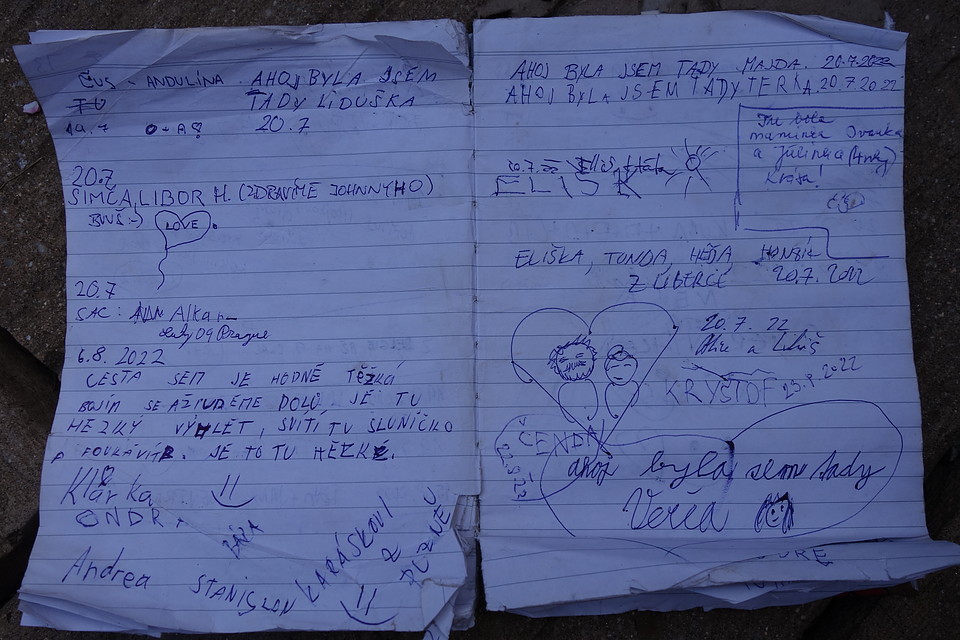 ČUS - ANDULÍNA
AHOJ BYLA JSEM
TADY LIDUŠKA
20.7
20.7
SIMČA, LIBOR H. (ZDRAVÍME JOHNNYHO)
LOVE
20.7
SAC: Alkan
Prague
6.8. 2022
CESTA SEM JE HODNĚ TĚŽKÁ
BOJÍM SE AŽ PUDEME DOLŮ. JE TU
HEZKÝ VÝHLET, SVÍTÍ TU SLUNÍČKO
JE TO TU HĚZKÉ.
Klárka
ONDRA
BÁRA
Andrea
STANISLAV
KARÁSKOVI
Z
PLZNĚ
AHOJ BYLA JSEM TADY MAJDA. 20.7.2022
AHOJ BYLA JSEM TADY TERKA 20.7.2022
Tu byla
maminka Ivanka
a Julinka
Krása!
20.7.22
ELIŠKA, TONDA, HONZÍK
Z LIBERCE 20.7.2022
20.7.22
Alice a
KRYŠTOF 23.8.2022
ČENDA
ahoj byla jseme tady
Verča